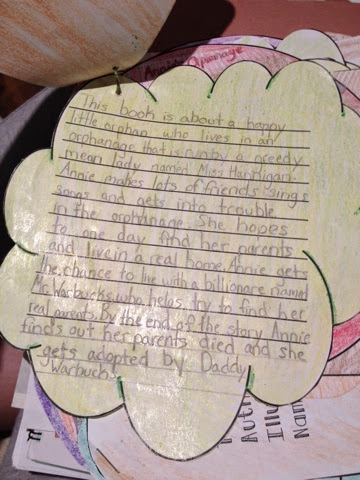 Annie's Orphanage
This book is about a happy
little orphan who lives in an
orphanage that is run by a greedy
mean lady named Miss Hannigan.
Annie makes lots of friends sings
songs and gets into trouble
in the orphanage. She hopes
to one day find her parents
and live in a real home. Annie gets
the chance to live with a billionare named
Mr. Warbucks who helps try to find her
real parents. By the end of the story Annie
finds out her parents died and she
gets adopted by Daddy
Warbucks.
Auth
Illu
Nam